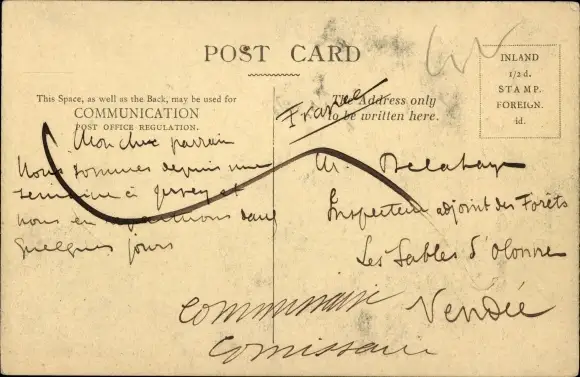 POST CARD
This Space, as well as the Back, may be used for
COMMUNICATION
POST OFFICE REGULATION.
The Address only
to be written here.
INLAND
1/2 d.
STAMP.
FOREIGN.
1d.
France
Mon cher parrain
Nous sommes depuis une
semaine à Jersey et
nous en repartirons dans
quelques jours
M. Delahaye
Inspecteur adjoint des Forêts
Les Sables d'Olonne
Vendée
Communaire
Comissaire